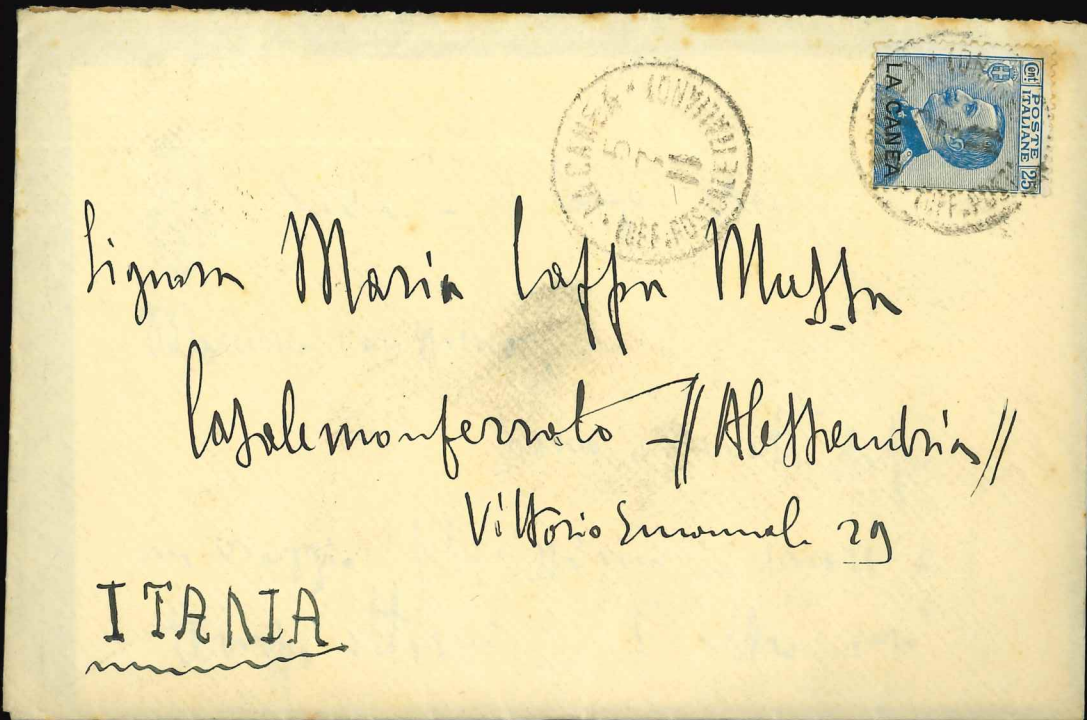 POSTE
ITALIANE
Cent 25
LA CANEA
LA CANEA
5 7 11
Signora Maria Cappa Mussa
Casalemonferrato - // Alessandria //
Vittorio Emanuele 29
ITANIA